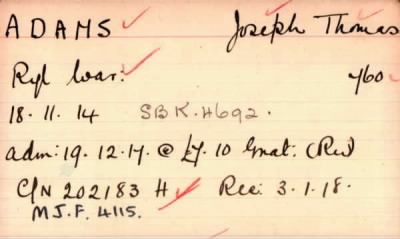 ADAMS Joseph Thomas
Ryl War: 460
18. 11. 14 SBK. H692.
adm: 19. 12. 17. @ £7. 10 Grat: (Rev)
C/N 202183 H Rec: 3. 1. 18.
MJ.F. 4115.